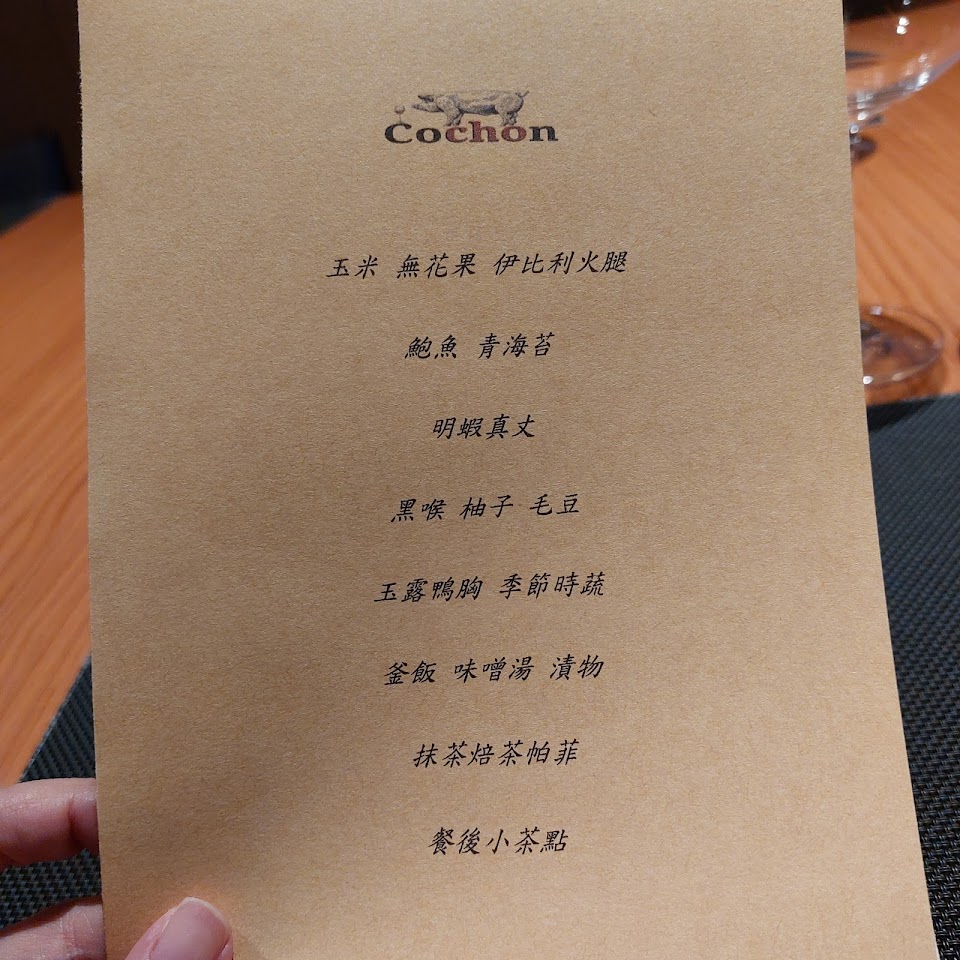 Cochon
玉米 無花果 伊比利火腿
鮑魚 青海苔
明蝦真丈
黑喉 柚子 毛豆
玉露鴨胸 季節時蔬
釜飯 味噌湯 漬物
抹茶焙茶帕菲
餐後小茶點